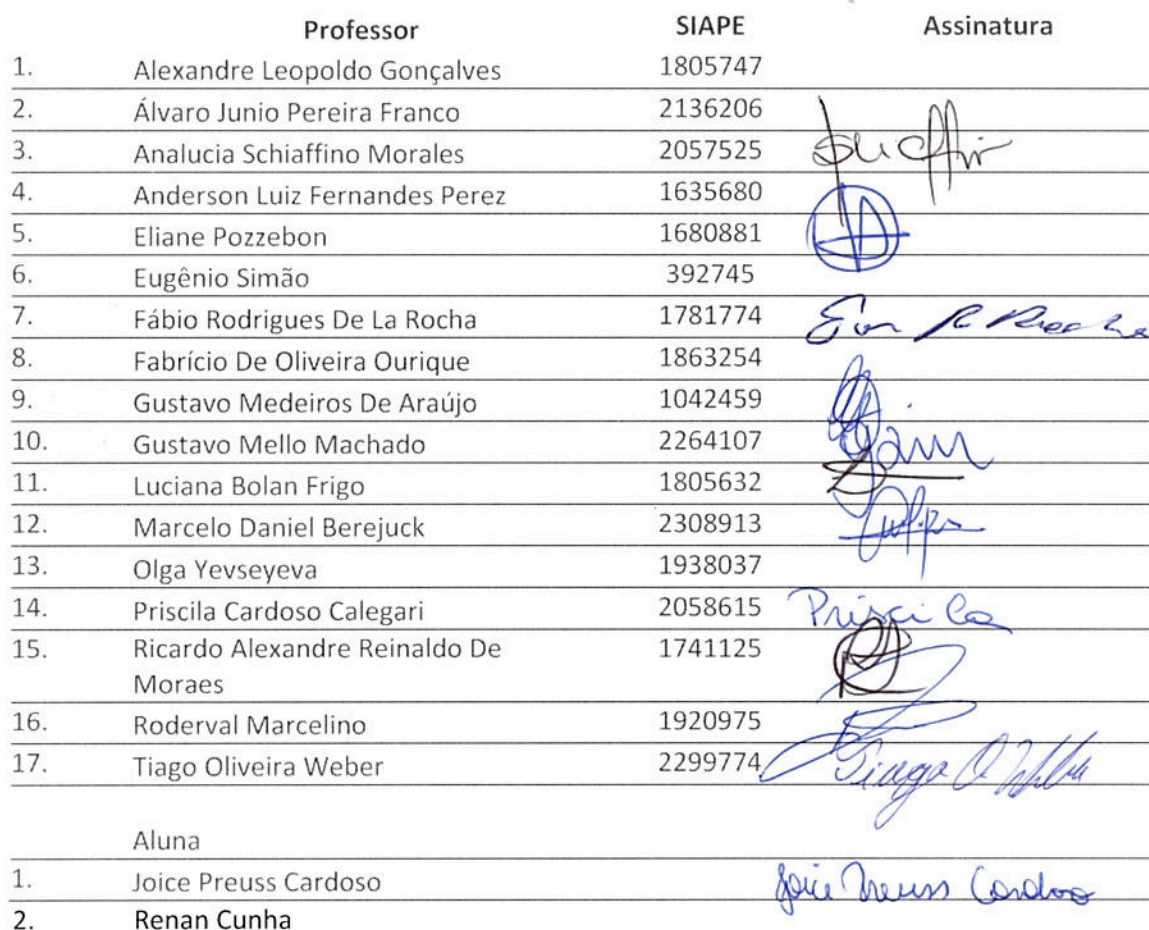 Professor SIAPE Assinatura
1. Alexandre Leopoldo Gonçalves 1805747
2. Álvaro Junio Pereira Franco 2136206
3. Analucia Schiaffino Morales 2057525
4. Anderson Luiz Fernandes Perez 1635680
5. Eliane Pozzebon 1680881
6. Eugênio Simão 392745
7. Fábio Rodrigues De La Rocha 1781774
8. Fabrício De Oliveira Ourique 1863254
9. Gustavo Medeiros De Araújo 1042459
10. Gustavo Mello Machado 2264107
11. Luciana Bolan Frigo 1805632
12. Marcelo Daniel Berejuck 2308913
13. Olga Yevseyeva 1938037
14. Priscila Cardoso Calegari 2058615 Priscila
15. Ricardo Alexandre Reinaldo De 1741125
Moraes
16. Roderval Marcelino 1920975
17. Tiago Oliveira Weber 2299774 Tiago O. Weber
Aluna
1. Joice Preuss Cardoso Joice Preuss Cardoso
2. Renan Cunha